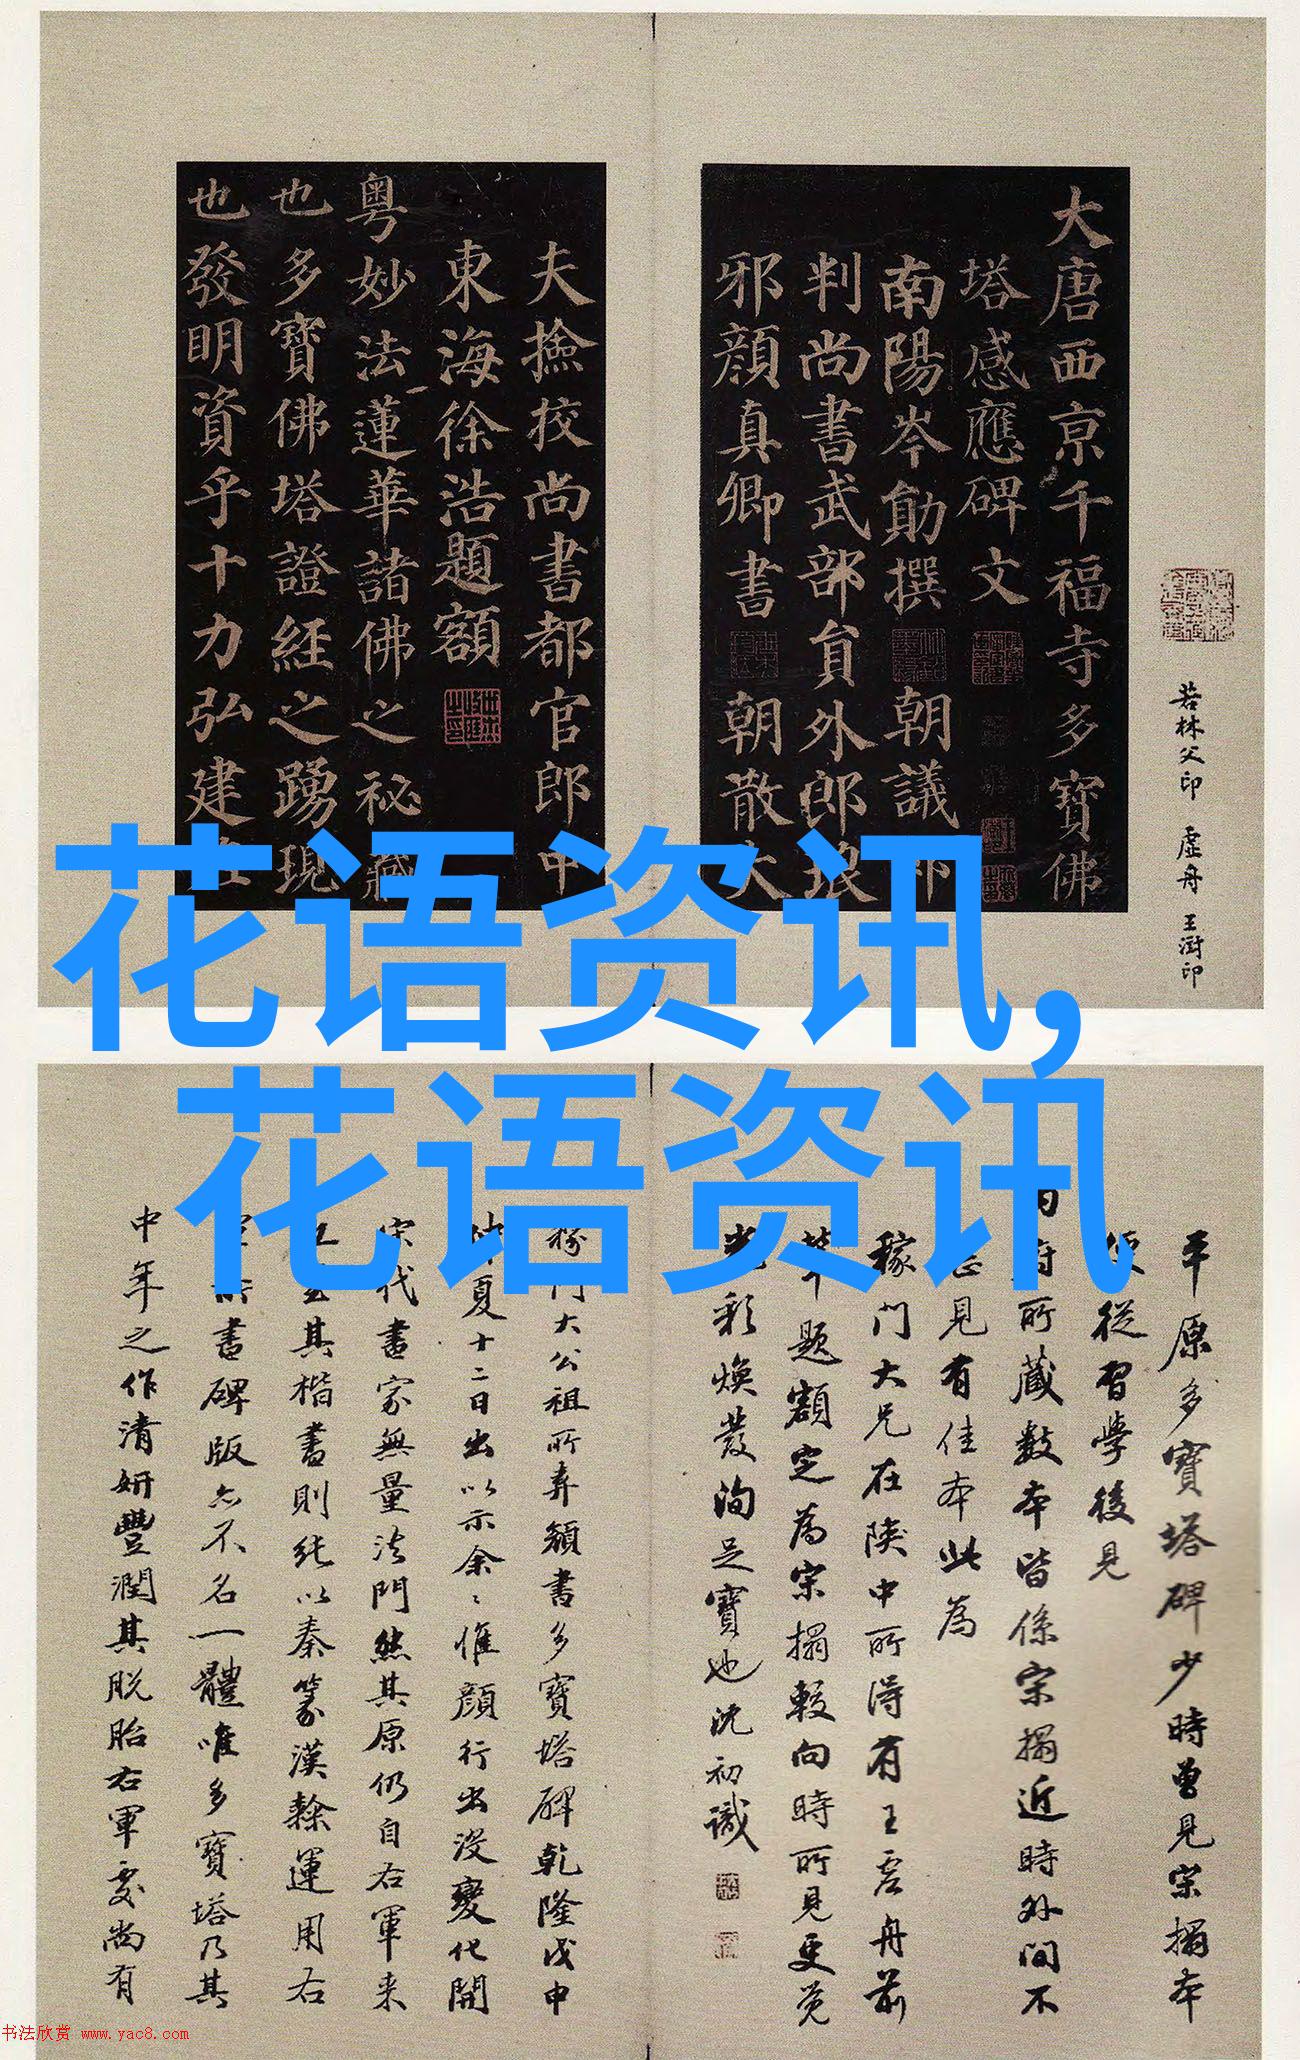 大唐西京千福寺多寶佛
塔感應碑文
南陽岑勛撰 朝議
判尚書武部員外郎琅
邪顏真卿書 朝散大
夫撿挍尚書都官郎中
東海徐浩題額
粤妙法蓮華諸佛之祕
也多寶佛塔證經之踴現
也發明資乎十力弘建
若林父印 虛舟 王澍印
花语资讯,
花语资讯
平原多寶塔碑少時曾見宋搨本
從習學後見
府所藏數本皆係宋搨近時外間不
見有佳本此為
稼門大兄在陝中所得有王虛舟前
題額定為宋搨較向時所見更覺
彩煥發洵足寶也沈初識
門大公祖所弆顏書多寶塔碑乾隆戊申
仲夏十二日出以示余〻惟顏行出沒變化開
宋代書家無量法門然其原仍自右軍来
其楷書則純以秦篆漢隸運用右
書碑版亦不名一體唯多寶塔乃其
中年之作清妍豐潤其脱胎右軍處尚有
书法欣赏 www.yac8.com